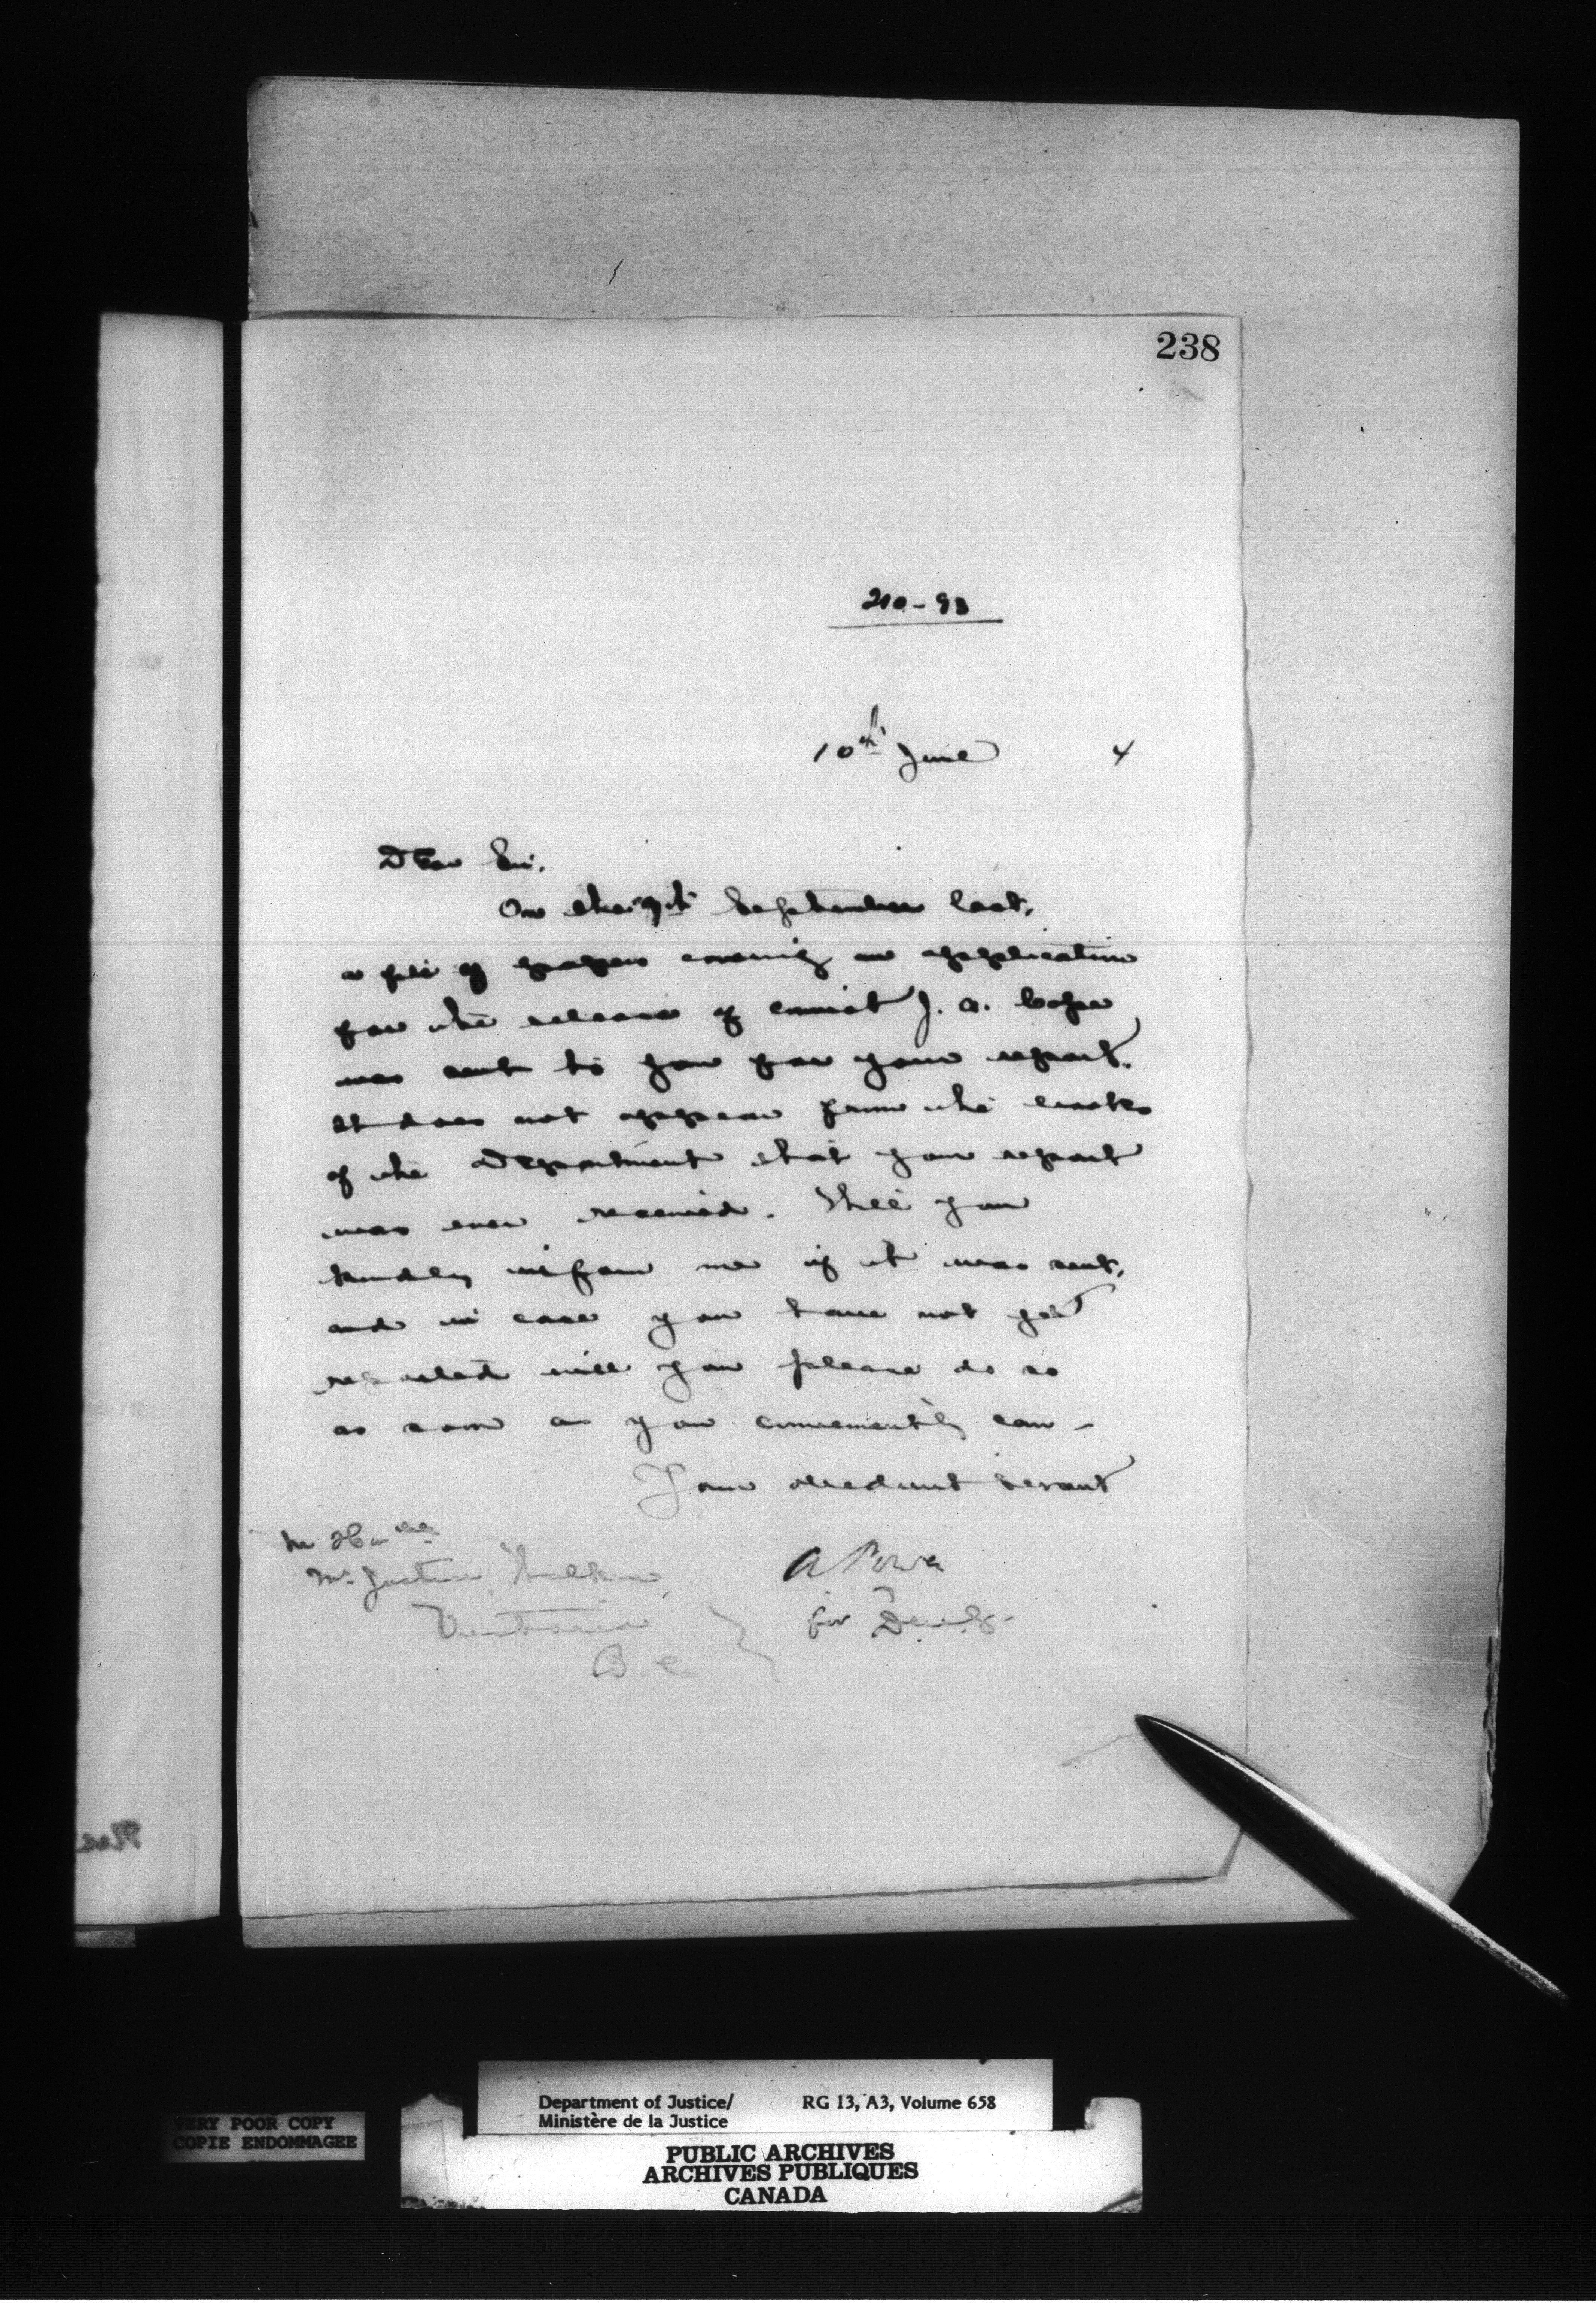 238
210-93
10th June 4
Dear Sir,
On the 7th September last,
a file of papers covering an application
for the release of convict J. A. Cope
was sent to you for your report.
It does not appear from the books
of the Department that your report
was ever received. Will you
kindly inform me if it was sent,
and in case you have not yet
reported will you please do so
as soon as you conveniently can -
Your obedient servant
The Honble
Mr Justice Walkem,
Victoria
B. C.
A Power
for D.
Department of Justice/ RG 13, A3, Volume 658
Ministère de la Justice
VERY POOR COPY
COPIE ENDOMMAGEE
PUBLIC ARCHIVES
ARCHIVES PUBLIQUES
CANADA